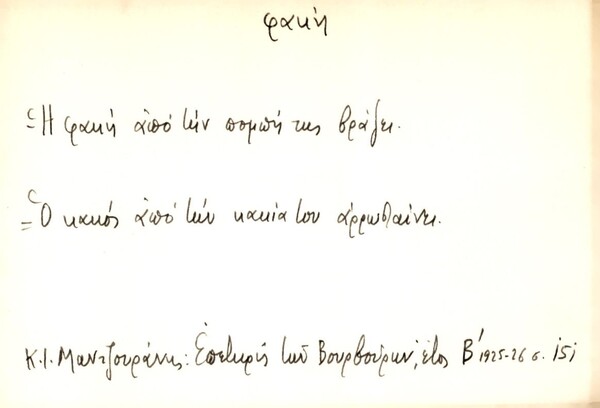 φακή
Ἡ φακή ἀπό τήν πομπή της βράζει.
Ὁ κακός ἀπό τήν κακία του ἀρρωσταίνει.
Κ.Ι. Μαντζουράνης: Ἐπετηρίς τοῦ Βουρβούρων, ἔτος Β' 1925-26 σ. 151